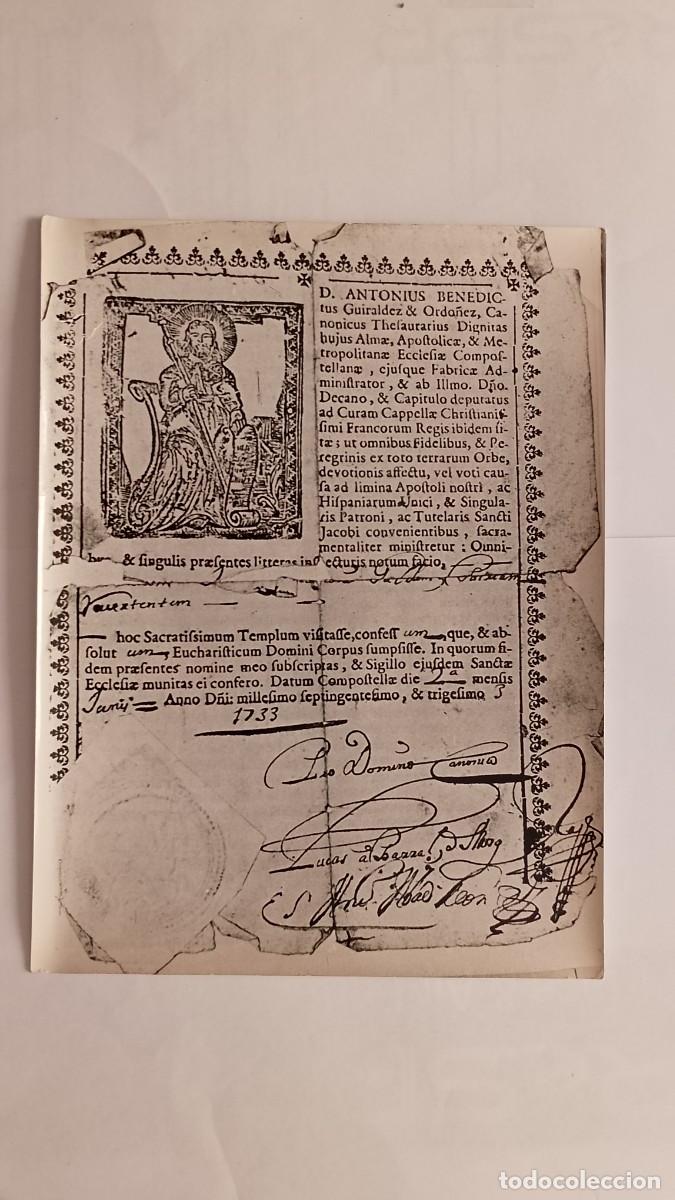 D. ANTONIUS BENEDIC-
tus Guiraldez & Ordoñez, Ca-
nonicus Thesaurarius Dignitas
hujus Almæ, Apostolicæ, & Me-
tropolitanæ Ecclesiæ Compos-
tellanæ, ejusque Fabricæ Ad-
ministrator, & ab Illmo. Dño.
Decano, & Capitulo deputatus
ad Curam Cappellæ Christianis-
simi Francorum Regis ibidem si-
tæ; ut omnibus Fidelibus, & Pe-
regrinis ex toto terrarum Orbe,
devotionis affectu, vel voti cau-
sa ad limina Apostoli nostri, ac
Hispaniarum Unici, & Singula-
ris Patroni, ac Tutelaris Sancti
Jacobi convenientibus, sacra-
mentaliter ministretur: Omni-
& singulis præsentes litteras ins ecturis notum facio,
hoc Sacratissimum Templum visitasse, confess um, que, & ab-
solut um, Eucharisticum Domini Corpus sumpsisse. In quorum fi-
dem præsentes nomine meo subscriptas, & Sigillo ejusdem Sanctæ
Ecclesiæ munitas ei confero. Datum Compostellæ die mensis
Junij Anno Dñi: millesimo septingentesimo, & trigesimo 3
1733
Pro Domino Canonico
Lucas
todocoleccion